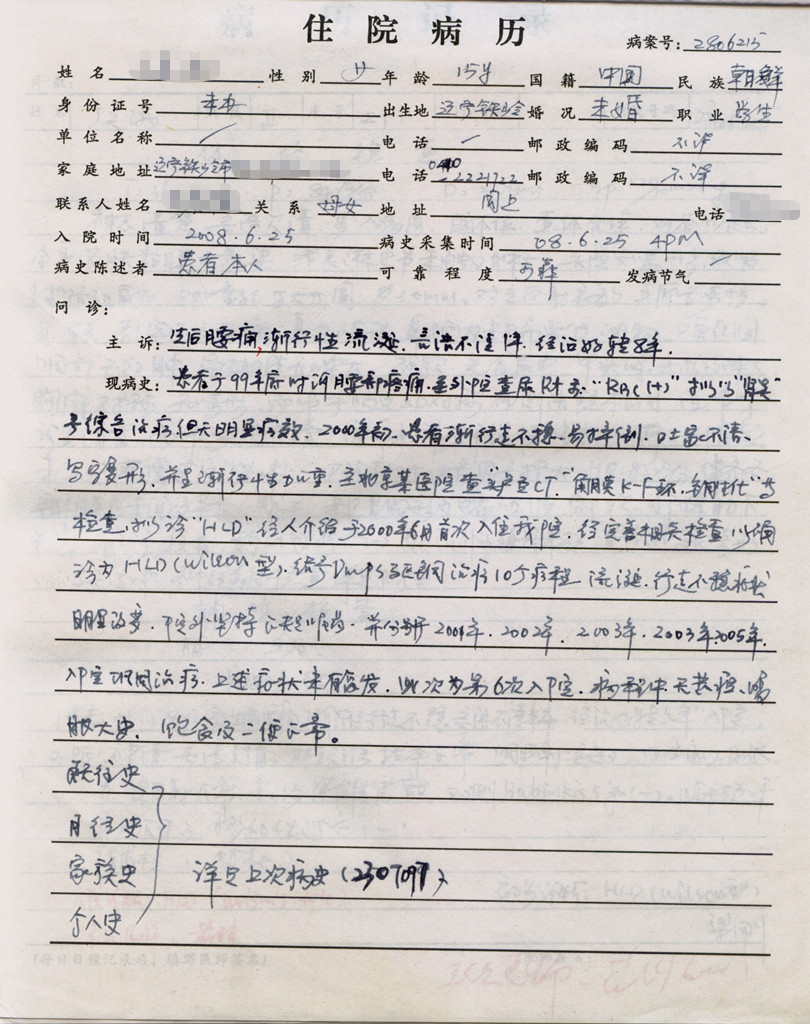 住院病历
病案号: 2806215
姓名 性别 女 年龄 15岁 国籍 中国 民族 朝鲜
身份证号 未办 出生地 辽宁铁岭 婚况 未婚 职业 学生
单位名称 / 电话 / 邮政编码 不详
家庭地址 辽宁铁岭市 电话 2221722 邮政编码 不详
联系人姓名 关系 母女 地址 同上 电话
入院时间 2008.6.25 病史采集时间 08.6.25 4PM
病史陈述者 患者本人 可靠程度 可靠 发病节气 /
问诊:
主诉: 腰痛,渐行性流涎、言语不清 年.经治好转 年.
现病史: 患者于99年 时 腰部疼痛.至外院查尿Rt示:"RBC(+)" 拟以"肾炎"
予综合治疗但无明显疗效.2000年初.患者渐行走不稳.易摔倒.吐字不清.
写字变形,并呈渐行性加重,至北京某医院查"CT""角膜K-F环.铜生化"等
检查,拟诊"HLD"经人介绍于2000年6月首次入住我院,经完善相关检查,以确
诊为HLD(Wilson型).给予Dmps驱铜治疗10个疗程 流涎,行走不稳症状
明显改善.院外坚持 服药.并分别于2001年.2002年.2003年.2003年.2005年.
入院驱铜治疗.上述症状未有复发.此次为第6次入院.病程中.无 
史.饮食及二便正常。
既往史
月经史
家族史 详见上次病史(2507097)
个人史